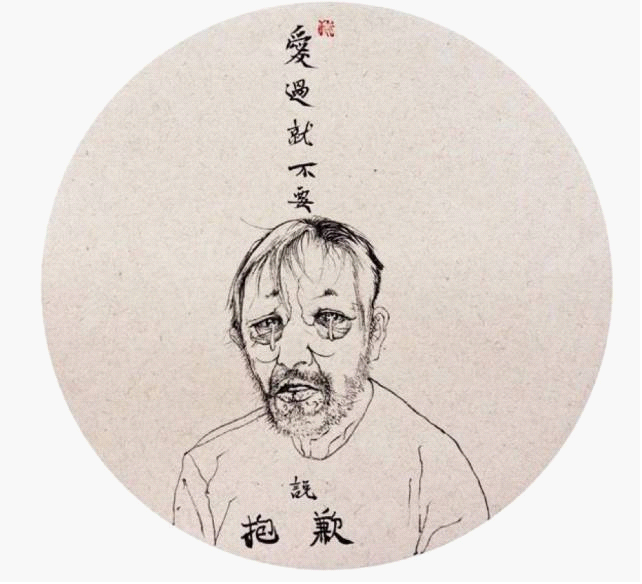 愛過就不要
説
抱歉